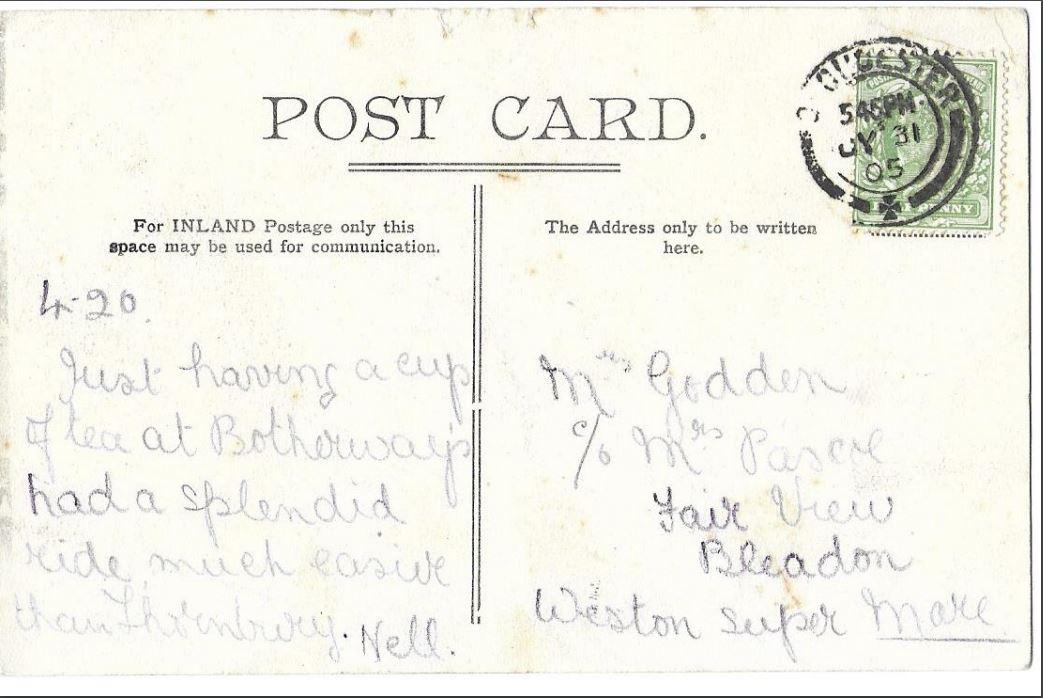 POST CARD.
GLOUCESTER
5 45 PM
JY 31
05
HALFPENNY
For INLAND Postage only this
space may be used for communication.
The Address only to be written
here.
4-20.
Just having a cup
of tea at Botherways
had a splendid
ride, much easier
than Thornbury. Nell.
Mrs Godden
c/o Mrs Pascoe
Fair View
Bleadon
Weston super Mare